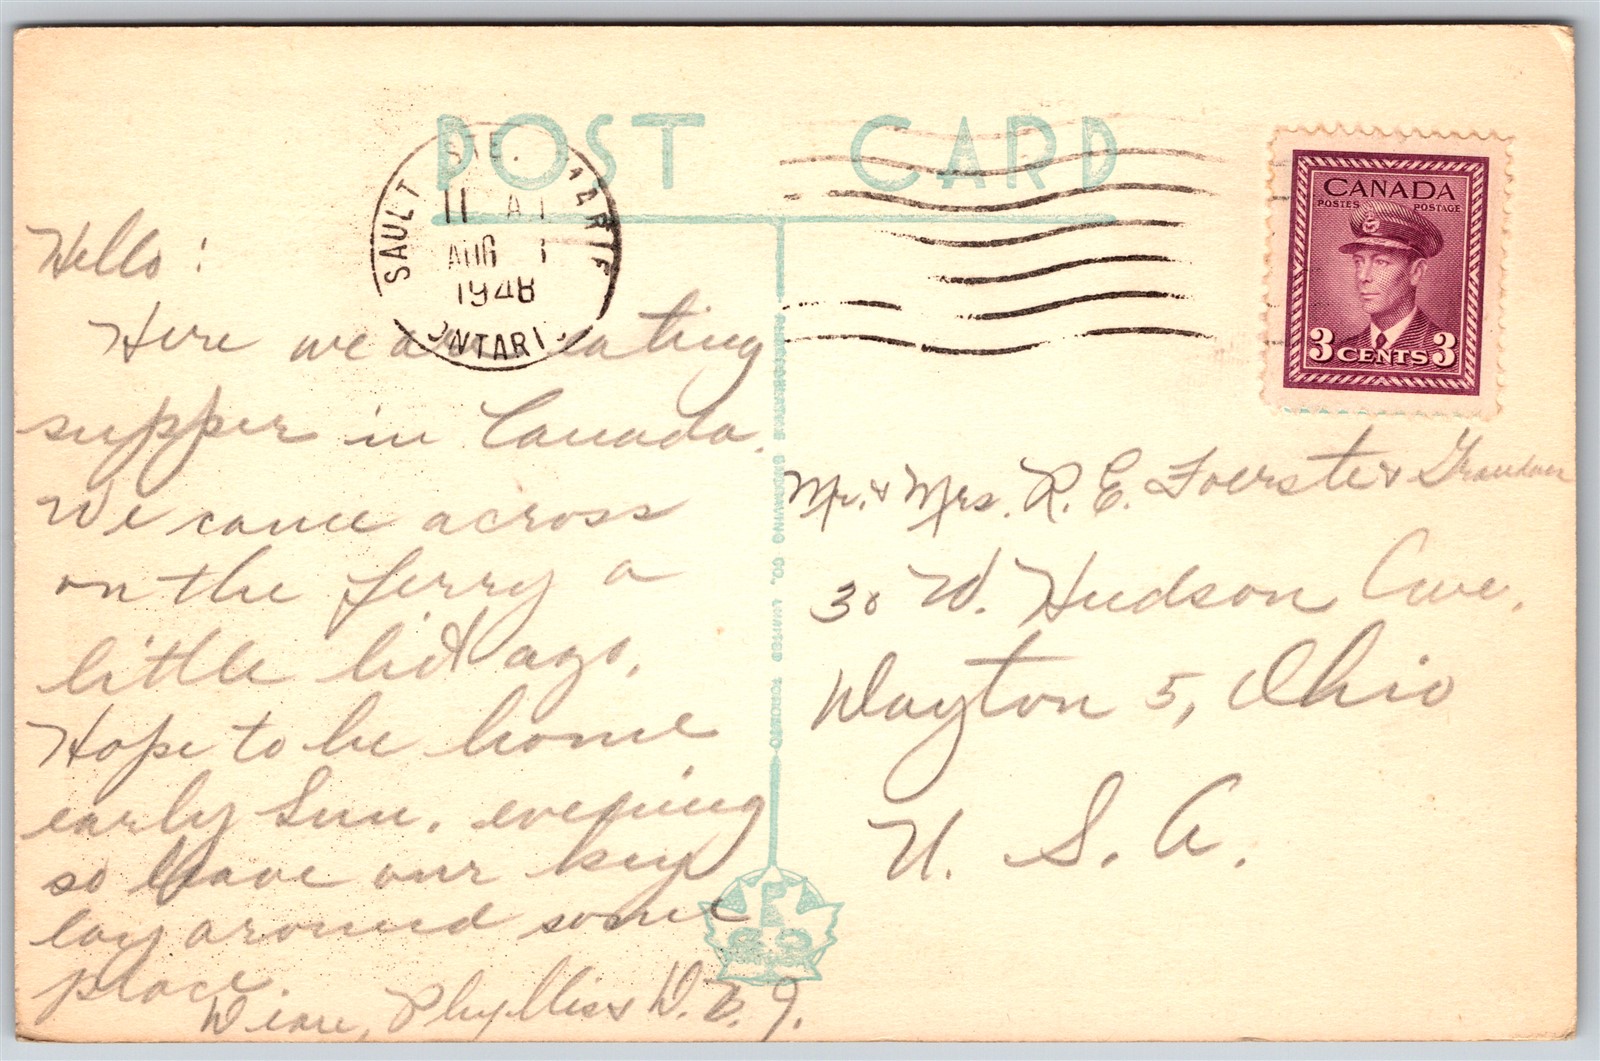 POST CARD
SAULT STE. MARIE
11 A
AUG
1948
ONTARIO
CANADA
POSTES POSTAGE
3 CENTS 3
Hello :
Here we are eating
supper in Canada.
We came across
on the ferry a
little bit ago.
Hope to be home
early Sun. evening
so leave our key
lay around some
place.
Phyllis & D.
PHOTOGELATINE ENGRAVING CO. LIMITED TORONTO
Mr. & Mrs. R. E. Foerster &
30 W. Hudson Ave.
Dayton 5, Ohio
U. S. A.